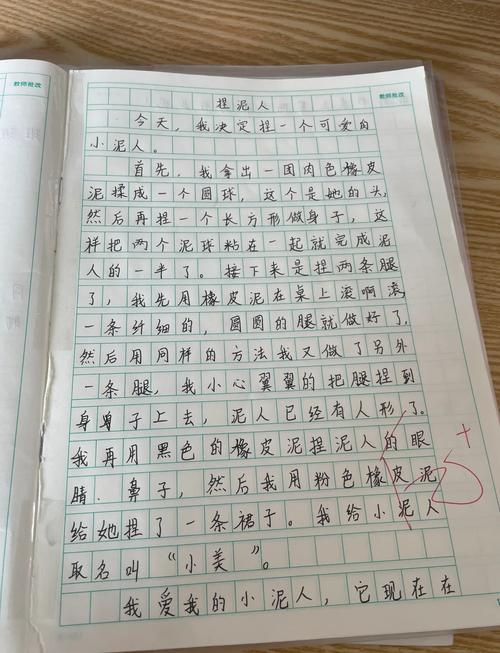 教师批改
教师批改
捏泥人
今天，我决定捏一个可爱的
小泥人。
首先，我拿出一团肉色橡皮
泥揉成一个圆球，这个是她的头，
然后再捏一个长方形做身子，这
样把两个泥球粘在一起就完成泥
人的一半了。接下来是捏两条腿
了，我先用橡皮泥在桌上滚啊滚
一条纤细的，圆圆的腿就做好了，
然后用同样的方法我又做了另外
一条腿，我小心翼翼的把腿捏到
身身子上去，泥人已经有人形了。
我再用黑色的橡皮泥捏泥人的眼
睛．鼻子，然后我用粉色橡皮泥
给她捏了一条裙子。我给小泥人
取名叫“小美”。
我爱我的小泥人，它现在在